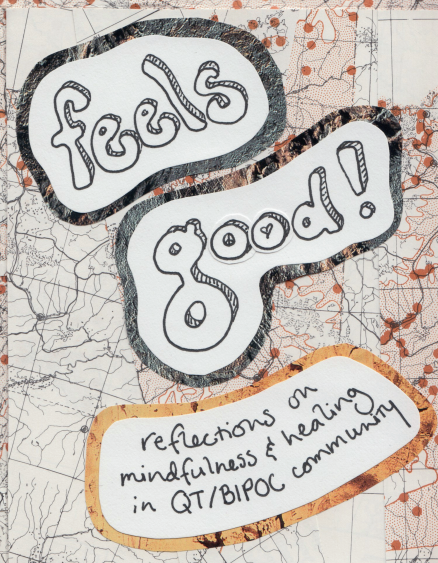 feels
good!
reflections on
mindfulness & healing
in QT/BIPOC community